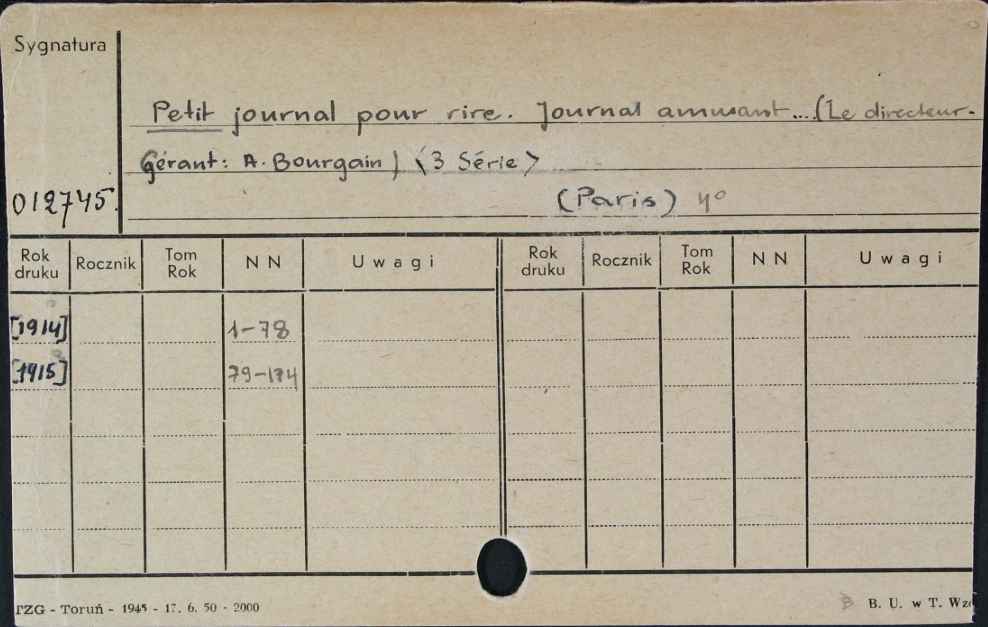 Sygnatura
Petit journal pour rire. Journal amusant... (Le directeur-
Gérant: A. Bourgain) <3 Série>
012745.
(Paris) 4°
Rok druku Rocznik Tom Rok NN Uwagi Rok druku Rocznik Tom Rok NN Uwagi
[1914] 1-78
[1915]
TZG - Toruń - 1945 - 17. 6. 50 - 2000
B. U. w T.